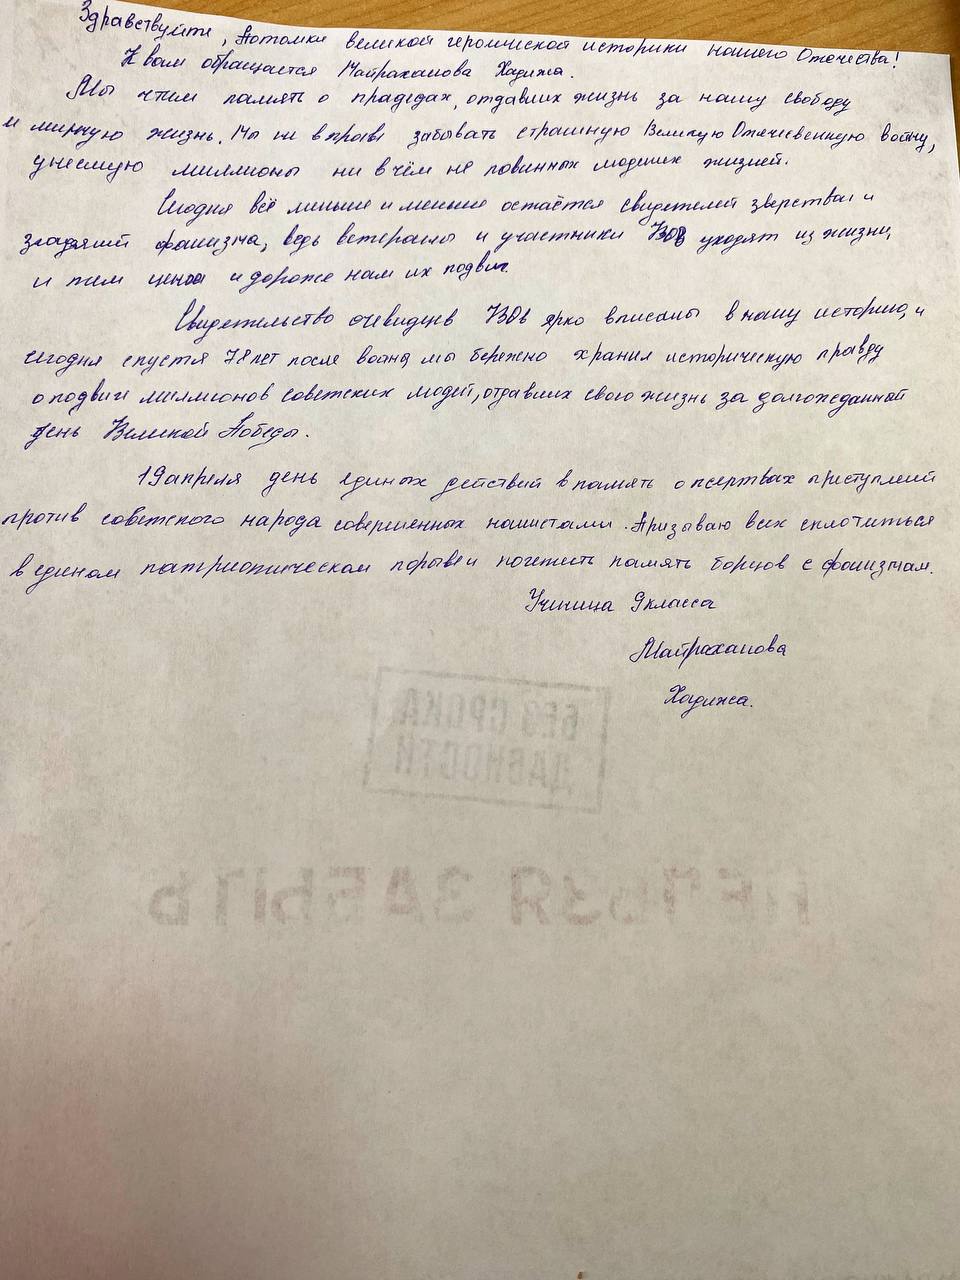 Здравствуйте, Потомки великой героической историки нашего Отечества!
К вам обращается Майраханова Хадижа.
Мы чтим память о прадедах, отдавших жизнь за нашу свободу
и мирную жизнь. Мы не в праве забывать страшную Великую Отечественную войну,
унесшую миллионы ни в чём не повинных людских жизней.
Сегодня всё меньше и меньше остаётся свидетелей зверства и
злодеяний фашизма, ведь ветераны и участники ВОВ уходят из жизни,
и тем ценна и дороже нам их подвиг.
Свидетельство очевидцев ВОВ ярко вписаны в нашу историю, и
сегодня спустя 78 лет после войны, мы бережно хранил историческую правду
о подвиги миллионов советских людей, отдавших свою жизнь за долгожданной
день Великой Победы.
19 апреля день единых действий в память о жертвах преступлений
против советского народа совершенных нацистами. Призываю всех сплотиться
в едином патриотическом порыве и почетить память борцов с фашизмом.
Ученица 9 класса
Майраханова
Хадижа.
БЕЗ СРОКА
ДАВНОСТИ
НЕЛЬЗЯ ЗАБЫТЬ